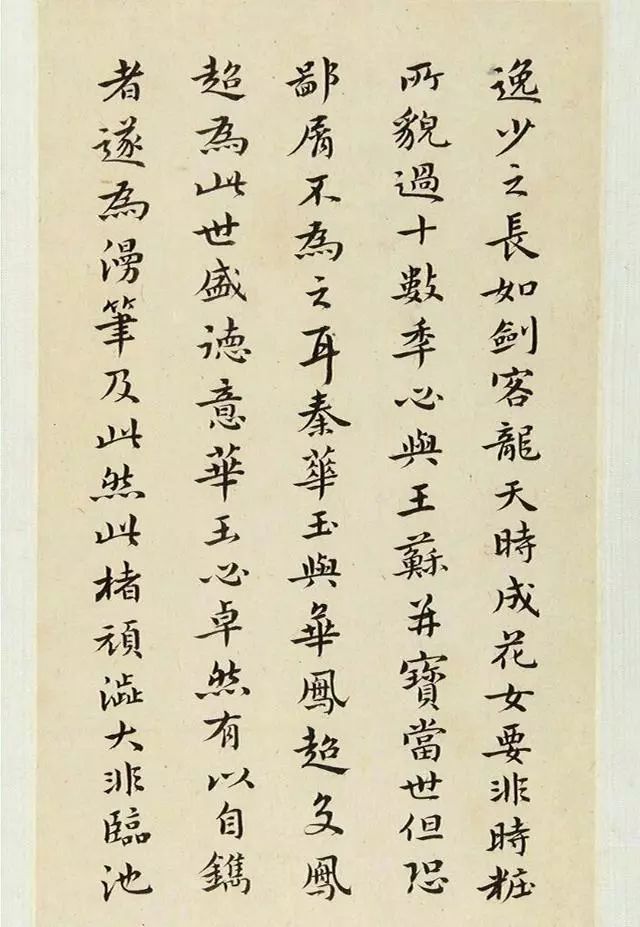 逸少之長如劍客龍天時成花女要非時粧
所貌過十數季必與王蘇并寶當世但恐
鄙屑不為之耳秦華玉與華鳳超友鳳
超為此世盛德意華玉必卓然有以自鐫
者遂為漫筆及此然此楮頑澁大非臨池